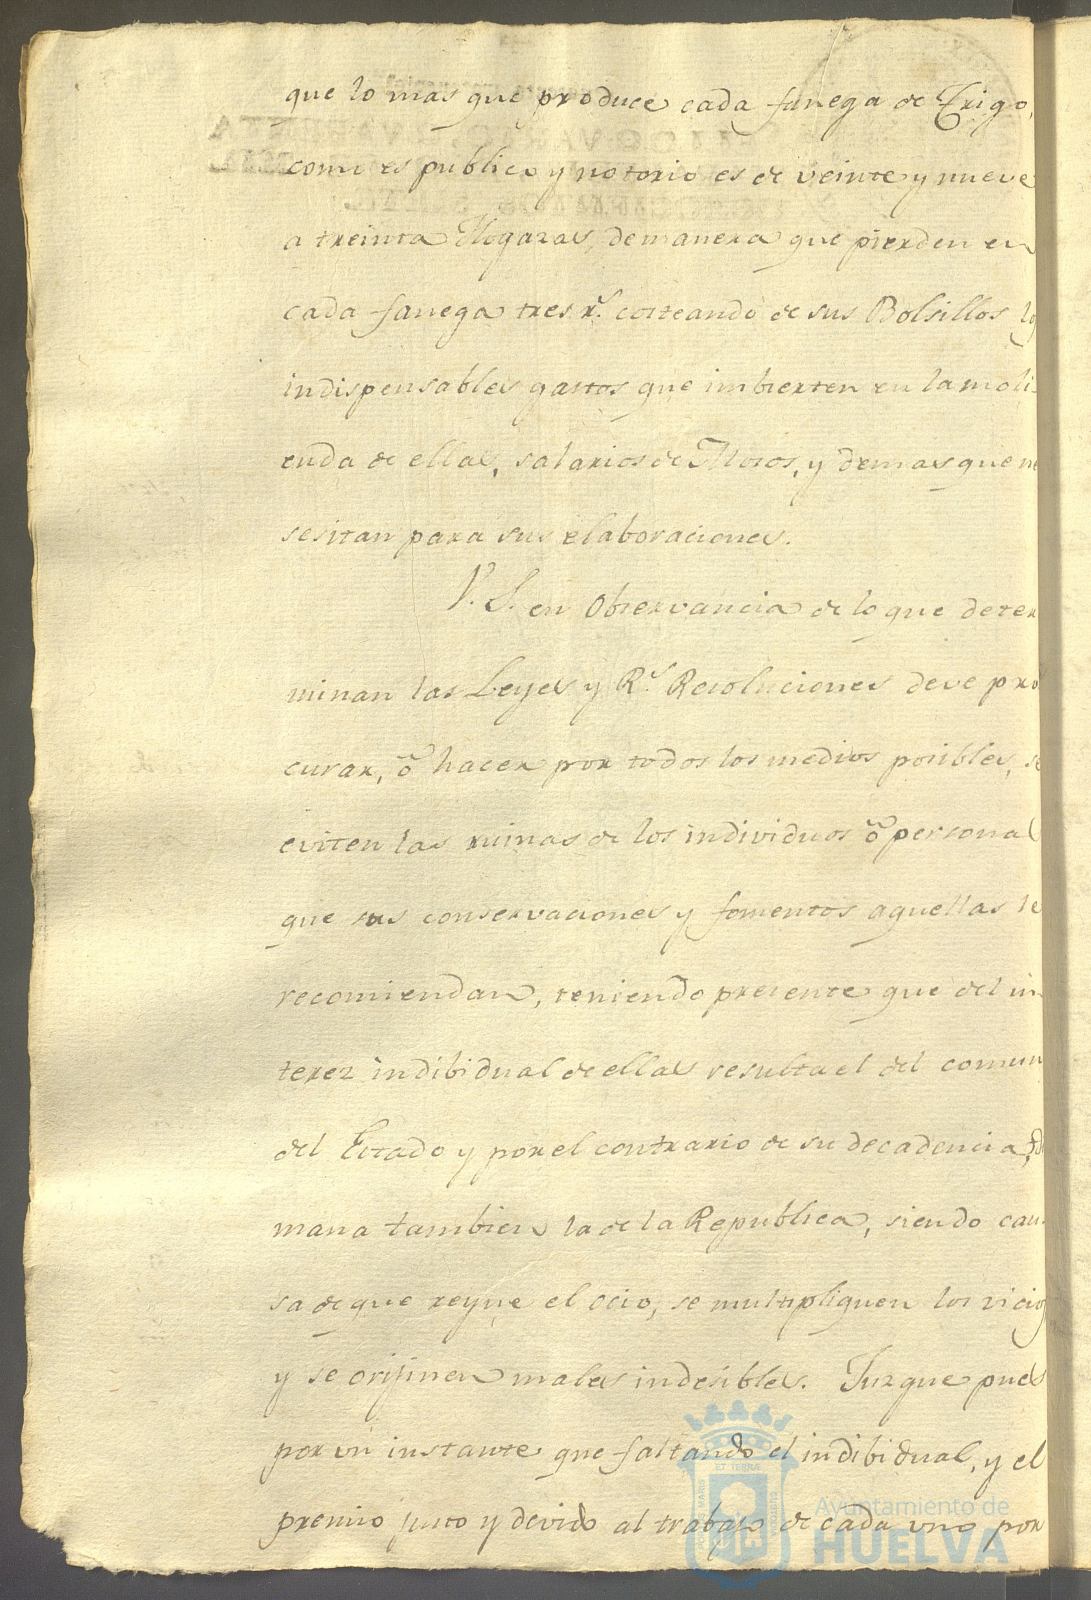 que lo mas que produce cada fanega de Trigo,
como es publico y notorio es de veinte y nueve
a treinta Hogazas, demanera que pierden en
cada fanega tres r.s costeando de sus Bolsillos lo
indispensables gastos que imbierten en la moli-
enda de ellas, salarios de Mosos, y demas que ne
sesitan para sus elaboraciones.
V. S. en Observancia de lo que deter
minan las Leyes y R.s Resoluciones deve pro
curar, ô hacer por todos los medios posibles, se
eviten las ruinas de los individuos ô personas
que sus conservaciones y fomentos aquellas le
recomiendan, teniendo presente que del in-
terez indibidual de ellas resulta el del comun
del Estado y por el contrario de su decadencia,
mana tambien la de la Republica, siendo cau-
sa de que reyne el ocio, se multipliquen los vicios
y se orijinen males indesibles. Jusgue pues
por un instante que faltando el indibidual, y el
premio justo y devido al trabajo de cada uno por
Ayuntamiento de
HUELVA